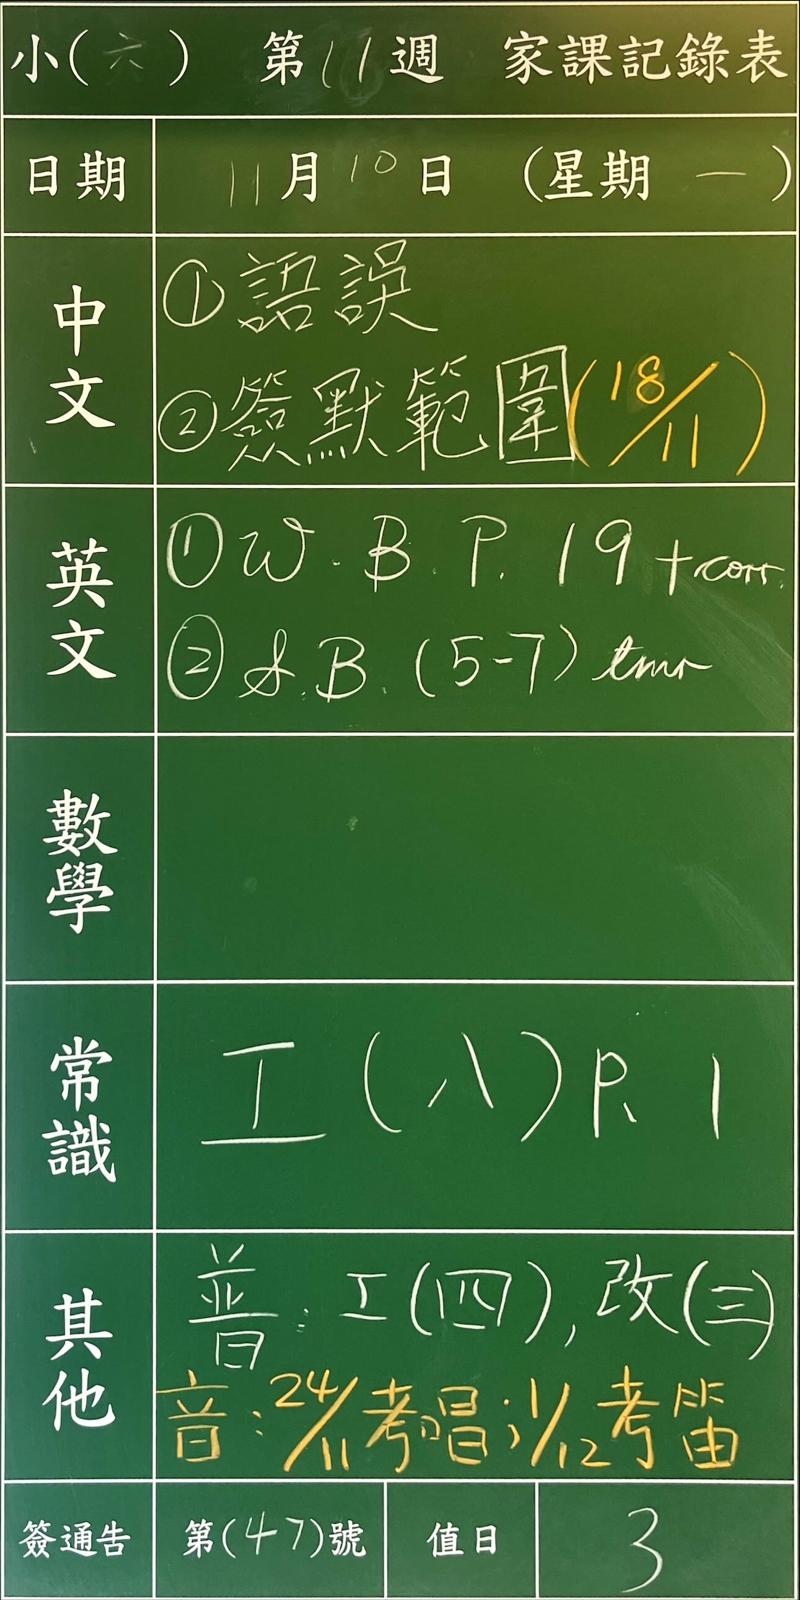 小(六) 第11週 家課記錄表
日期 11月10日 (星期一)
中文
①語誤
②簽默範圍(18/11)
英文
①W.B.P.19+corr.
②S.B.(5-7) tmr
數學
常識
工(八)P.1
其他
普:工(四),改(三)
音:24/11考唱;1/12考笛
簽通告 第(47)號 值日 3